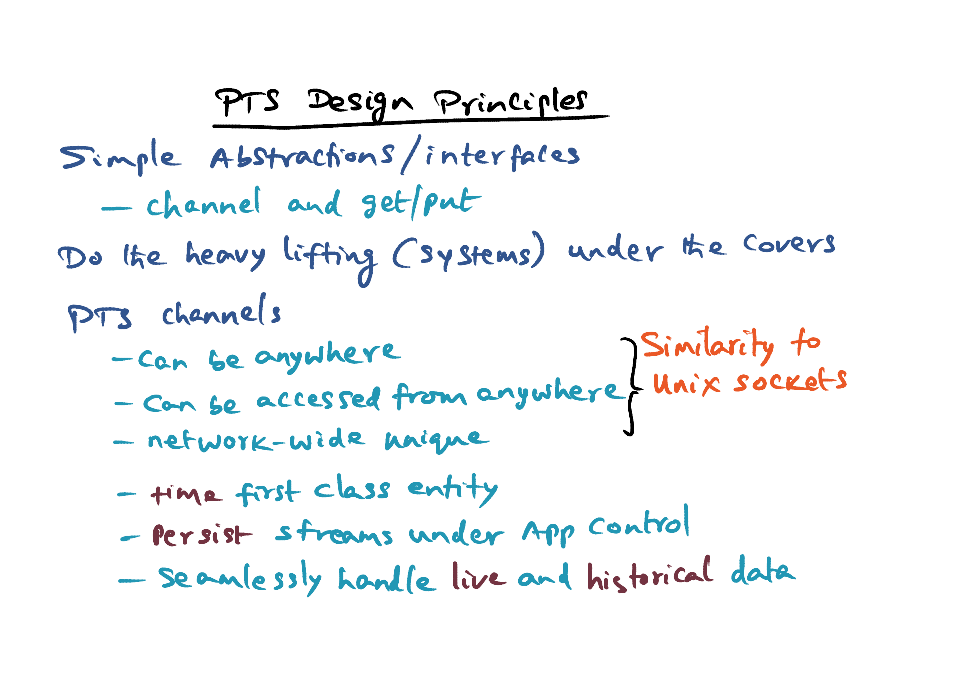 PTS Design Principles
Simple Abstractions/interfaces
- channel and get/put
Do the heavy lifting (systems) under the covers
PTS channels
- can be anywhere
- can be accessed from anywhere
- network-wide unique
Similarity to
Unix sockets
- time first class entity
- Persist streams under App control
- seamlessly handle live and historical data